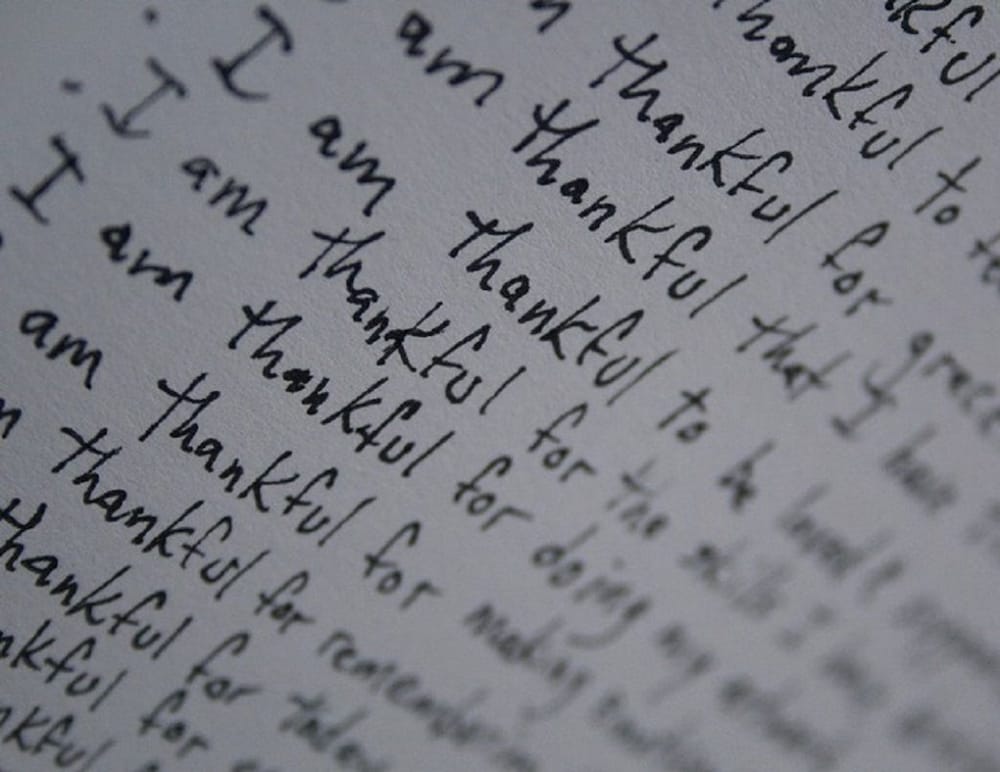 kful
thankful to
thankful for grace
am thankful that I have
I am thankful to be loved &
I am thankful for the skills I
I am thankful for doing my
am thankful for making
thankful for remembering
thankful for today
nkful for
nkful